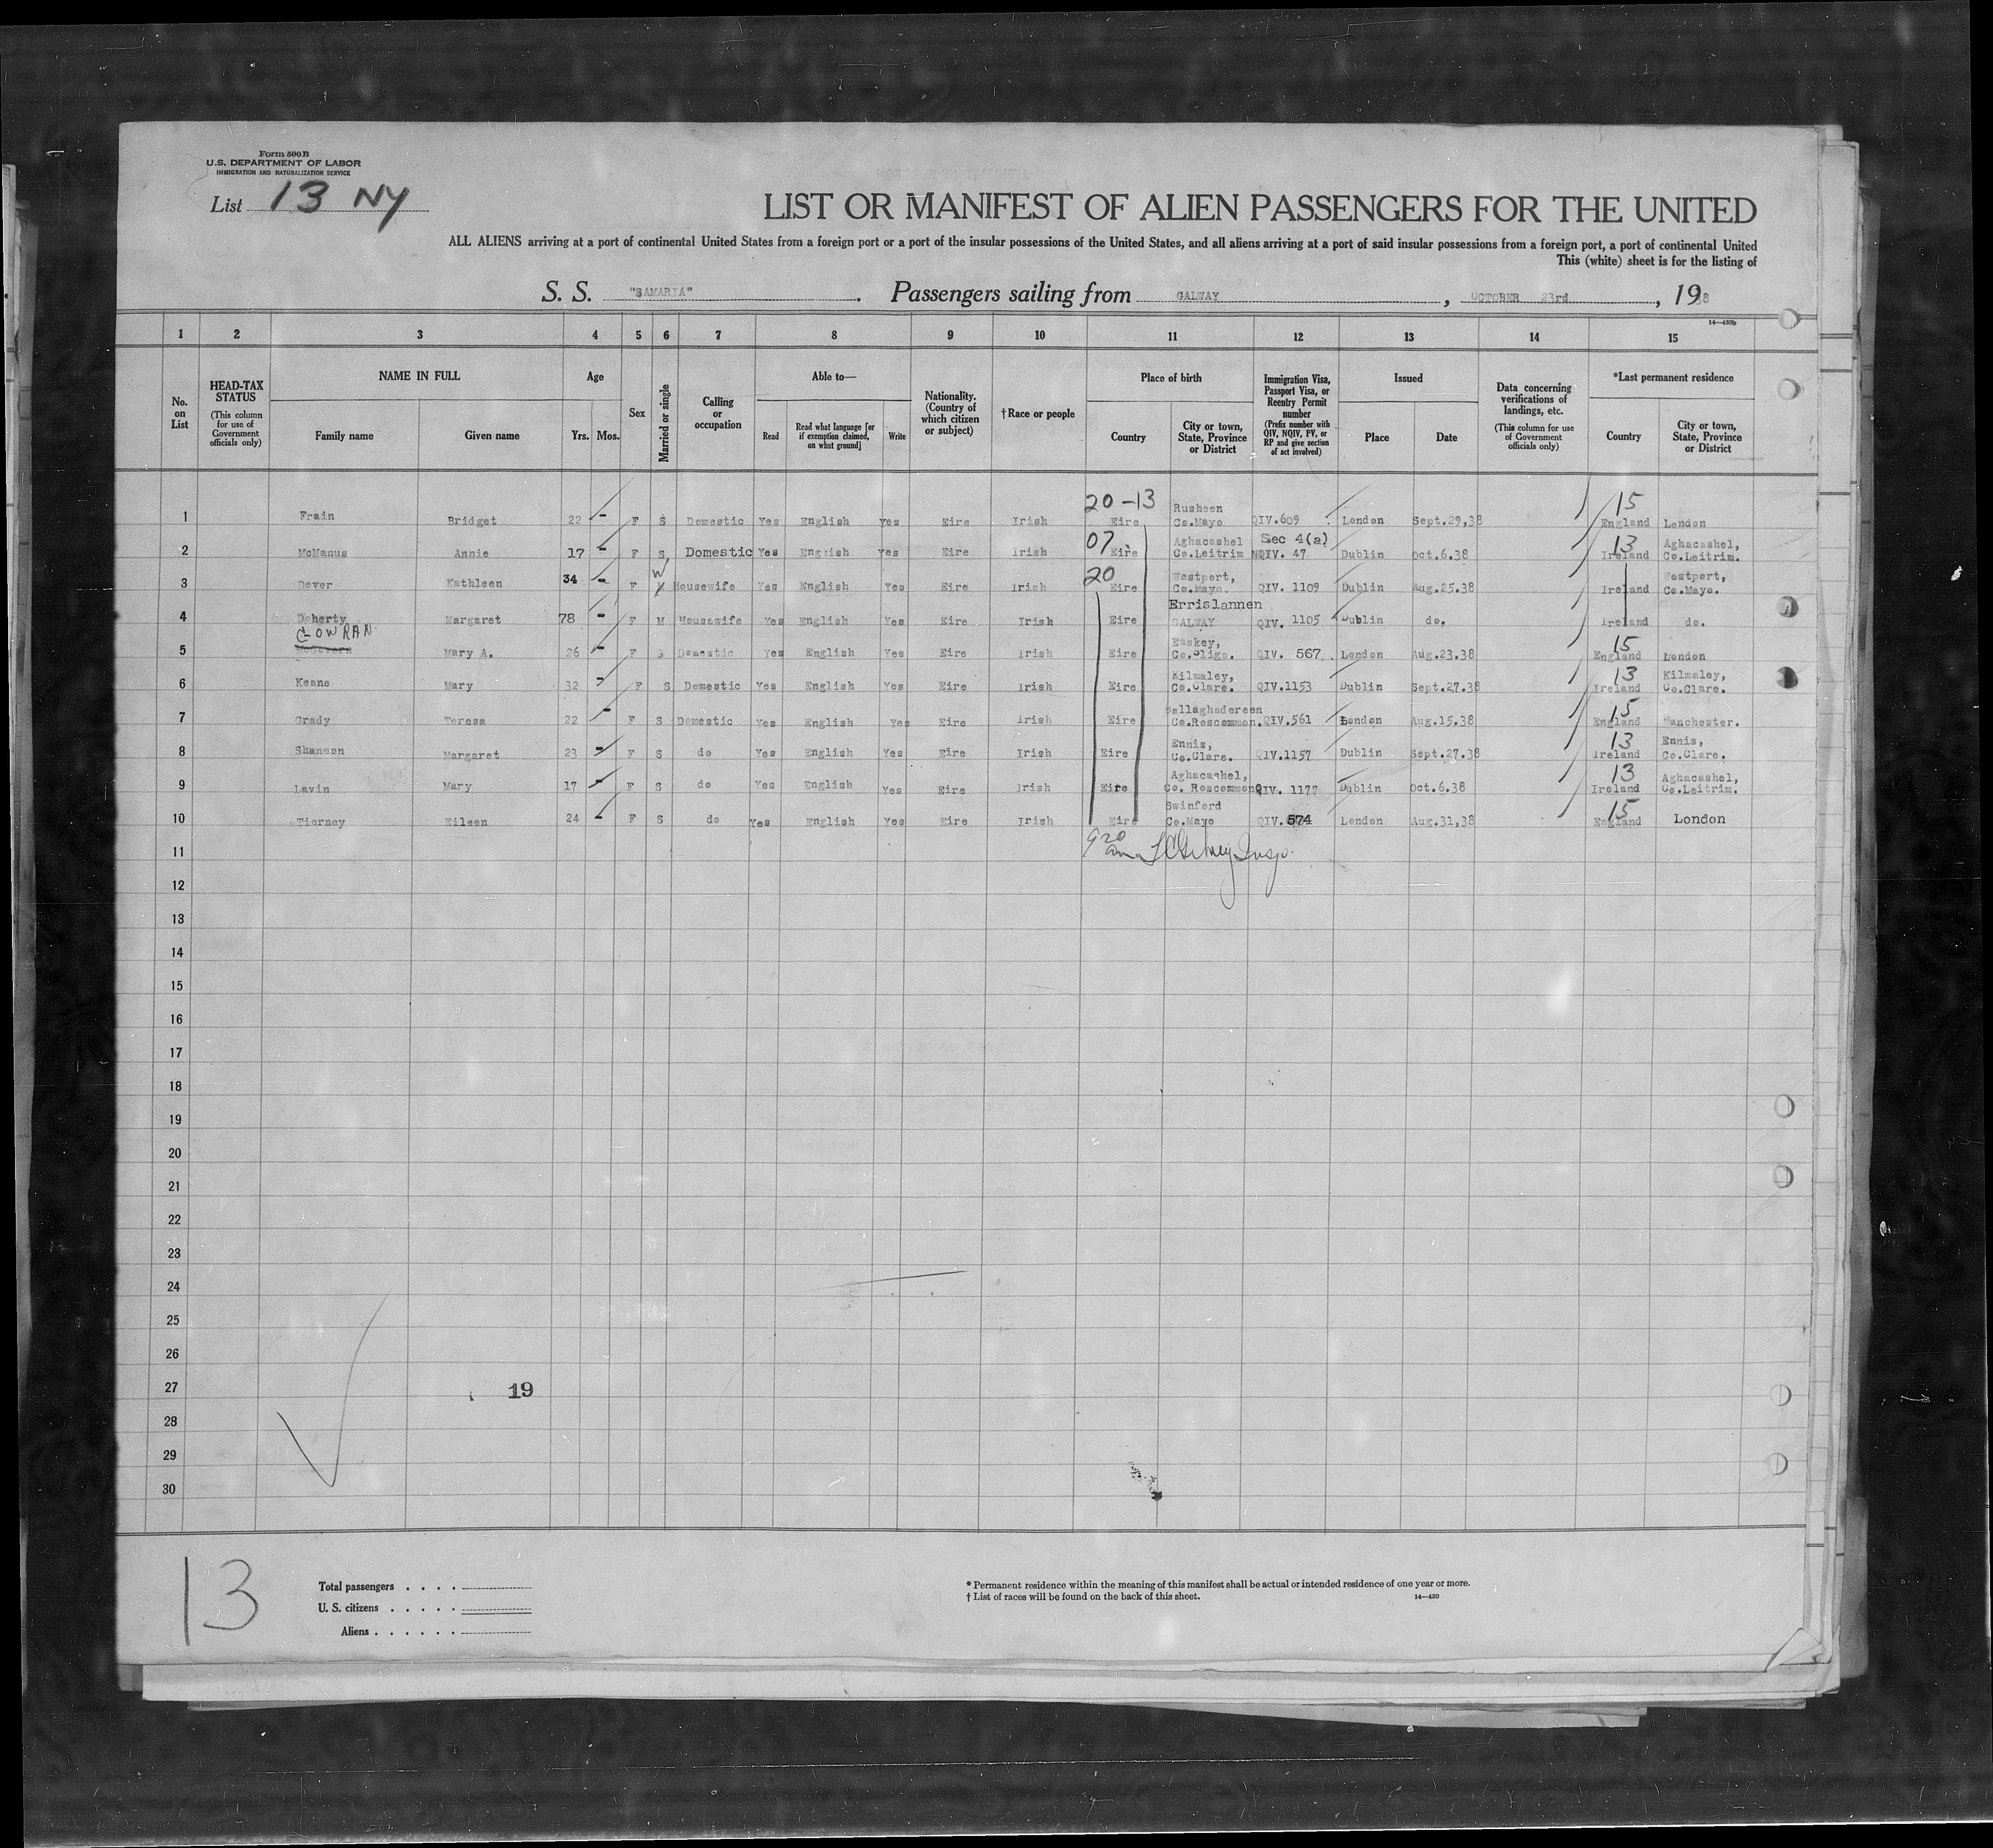 Form 500 B
U.S. DEPARTMENT OF LABOR
IMMIGRATION AND NATURALIZATION SERVICE
List 13 NY
LIST OR MANIFEST OF ALIEN PASSENGERS FOR THE UNITED
ALL ALIENS arriving at a port of continental United States from a foreign port or a port of the insular possessions of the United States, and all aliens arriving at a port of said insular possessions from a foreign port, a port of continental United
This (white) sheet is for the listing of
S. S. "SAMARIA". Passengers sailing from GALWAY, OCTOBER 23rd, 1938
14—430b
1 2 3 4 5 6 7 8 9 10 11 12 13 14 15
No. on List
HEAD-TAX STATUS (This column for use of Government officials only)
NAME IN FULL
Family name Given name
Age
Yrs. Mos.
Sex
Married or single
Calling or occupation
Able to—
Read Read what language [or if exemption claimed, on what ground] Write
Nationality. (Country of which citizen or subject)
†Race or people
Place of birth
Country City or town, State, Province or District
Immigration Visa, Passport Visa, or Reentry Permit number (Prefix number with QIV, NQIV, PV, or RP and give section of act involved)
Issued
Place Date
Data concerning verifications of landings, etc. (This column for use of Government officials only)
*Last permanent residence
Country City or town, State, Province or District
20-13 Rusheen 15
1 Frain Bridget 22 - F S Domestic Yes English Yes Eire Irish Eire Co.Mayo QIV.609 London Sept.29,38 England London
07 Aghacashel Sec 4(a) 13 Aghacashel,
2 McManus Annie 17 - F S Domestic Yes English Yes Eire Irish Eire Co.Leitrim NQIV. 47 Dublin Oct.6.38 Ireland Co.Leitrim.
W 20 Westport, Westport,
3 Dever Kathleen 34 - F M Housewife Yes English Yes Eire Irish Eire Co.Mayo. QIV. 1109 Dublin Aug.25.38 Ireland Co.Mayo.
Errislannen
4 Doherty Margaret 78 - F M Housewife Yes English Yes Eire Irish Eire GALWAY QIV. 1105 Dublin do. Ireland do.
GOWRAN Easkey, 15
5 Mary A. 26 - F S Domestic Yes English Yes Eire Irish Eire Co.Sligo. QIV. 567 London Aug.23.38 England London
Kilmaley, 13 Kilmaley,
6 Keane Mary 32 - F S Domestic Yes English Yes Eire Irish Eire Co.Clare. QIV.1153 Dublin Sept.27.38 Ireland Co.Clare.
Ballaghadereen 15
7 Grady Teresa 22 - F S Domestic Yes English Yes Eire Irish Eire Co.Roscommon. QIV.561 London Aug.15.38 England Manchester.
Ennis, 13 Ennis,
8 Shannon Margaret 23 - F S do Yes English Yes Eire Irish Eire Co.Clare. QIV.1157 Dublin Sept.27.38 Ireland Co.Clare.
Aghacashel, 13 Aghacashel,
9 Lavin Mary 17 - F S do Yes English Yes Eire Irish Eire Co. Roscommon QIV. 1177 Dublin Oct.6.38 Ireland Co.Leitrim.
Swinford 15
10 Tierney Eileen 24 - F S do Yes English Yes Eire Irish Eire Co.Mayo QIV.574 London Aug.31,38 England London
11 9 20 am Insp.
12
13
14
15
16
17
18
19
20
21
22
23
24
25
26
27 19
28
29
30
13
Total passengers . . . .
U. S. citizens . . . . .
Aliens . . . . . .
* Permanent residence within the meaning of this manifest shall be actual or intended residence of one year or more.
† List of races will be found on the back of this sheet. 14—430